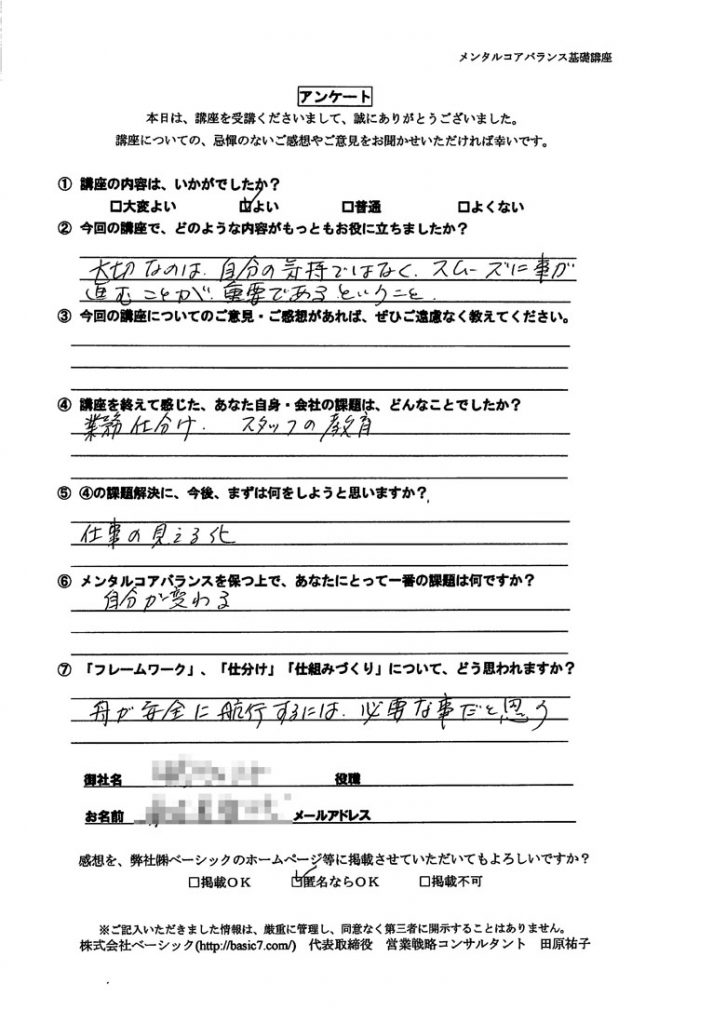 メンタルコアバランス基礎講座
アンケート
本日は、講座を受講くださいまして、誠にありがとうございました。
講座についての、忌憚のないご感想やご意見をお聞かせいただければ幸いです。
① 講座の内容は、いかがでしたか？
□大変よい ☑よい □普通 □よくない
② 今回の講座で、どのような内容がもっともお役に立ちましたか？
大切なのは、自分の気持ではなく、スムーズに事が
進むことが、重要であるということ。
③ 今回の講座についてのご意見・ご感想があれば、ぜひご遠慮なく教えてください。
④ 講座を終えて感じた、あなた自身・会社の課題は、どんなことでしたか？
業務仕分け． スタッフの教育
⑤ ④の課題解決に、今後、まずは何をしようと思いますか？
仕事の見える化
⑥ メンタルコアバランスを保つ上で、あなたにとって一番の課題は何ですか？
自分が変わる
⑦ 「フレームワーク」、「仕分け」「仕組みづくり」について、どう思われますか？
舟が安全に航行するには、必要な事だと思う
御社名 役職
お名前 メールアドレス
感想を、弊社㈱ベーシックのホームページ等に掲載させていただいてもよろしいですか？
□掲載ＯＫ ☑匿名ならＯＫ □掲載不可
※ご記入いただきました情報は、厳重に管理し、同意なく第三者に開示することはありません。
株式会社ベーシック(http://basic7.com/) 代表取締役 営業戦略コンサルタント 田原祐子